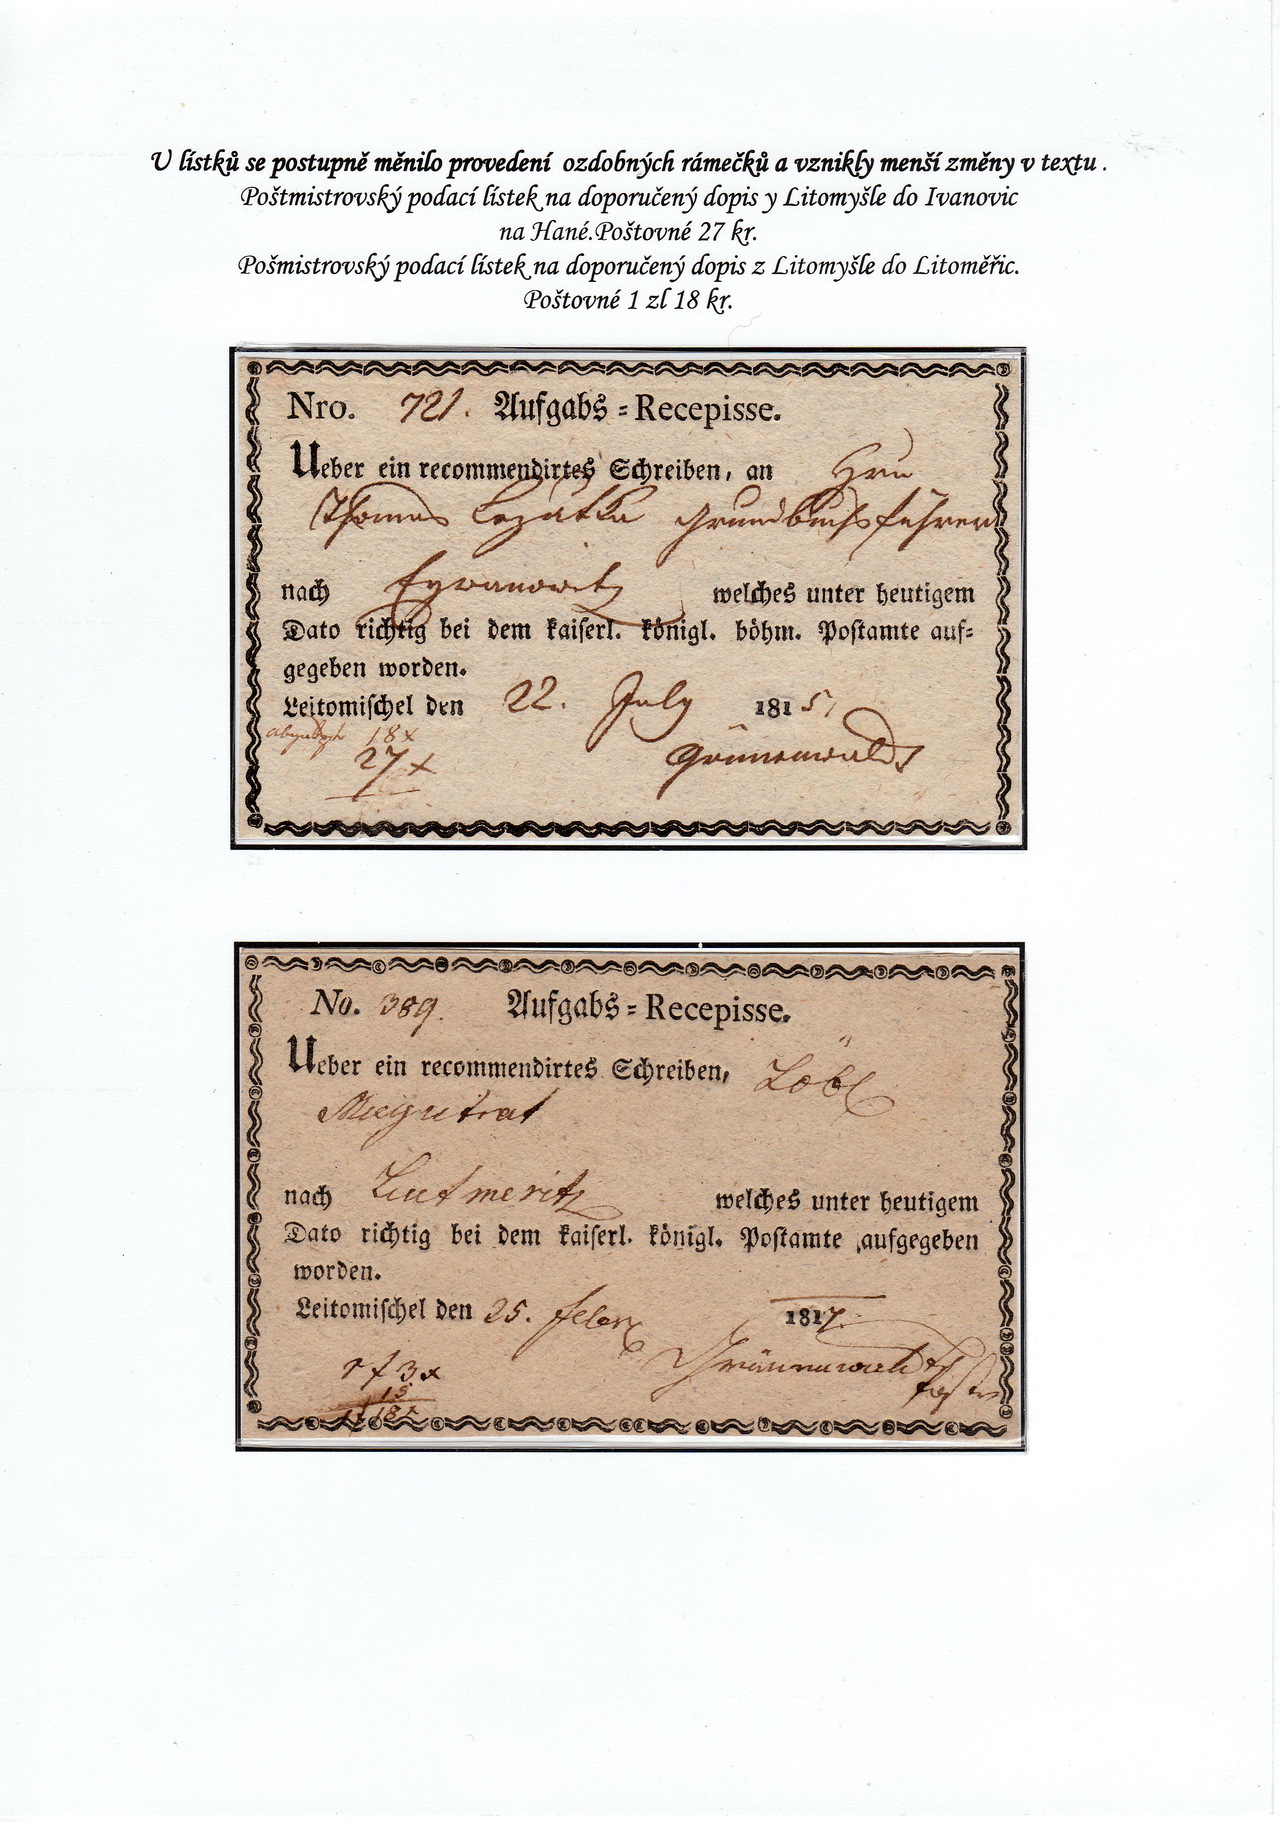 U lístků se postupně měnilo provedení ozdobných rámečků a vznikly menší změny v textu .
Poštmistrovský podací lístek na doporučený dopis y Litomyšle do Ivanovic
na Hané.Poštovné 27 kr.
Pošmistrovský podací lístek na doporučený dopis z Litomyšle do Litoměřic.
Poštovné 1 zl 18 kr.
Nro. 721. Aufgabs = Recepisse.
Ueber ein recommendirtes Schreiben, an Hrn
Thomas Lezatka Grundbuchsführer
nach Eywanowitz welches unter heutigem
Dato richtig bei dem kaiserl. königl. böhm. Postamte auf=
gegeben worden.
Leitomischel den 22. July 1815,
18x
27x Grünenwald
No. 389. Aufgabs = Recepisse.
Ueber ein recommendirtes Schreiben, Löbl
Magistrat
nach Leutmeritz welches unter heutigem
Dato richtig bei dem kaiserl. königl. Postamte aufgegeben
worden.
Leitomischel den 25. feber 1817.
1 f 3x Grünnenwald
15
1f 18x